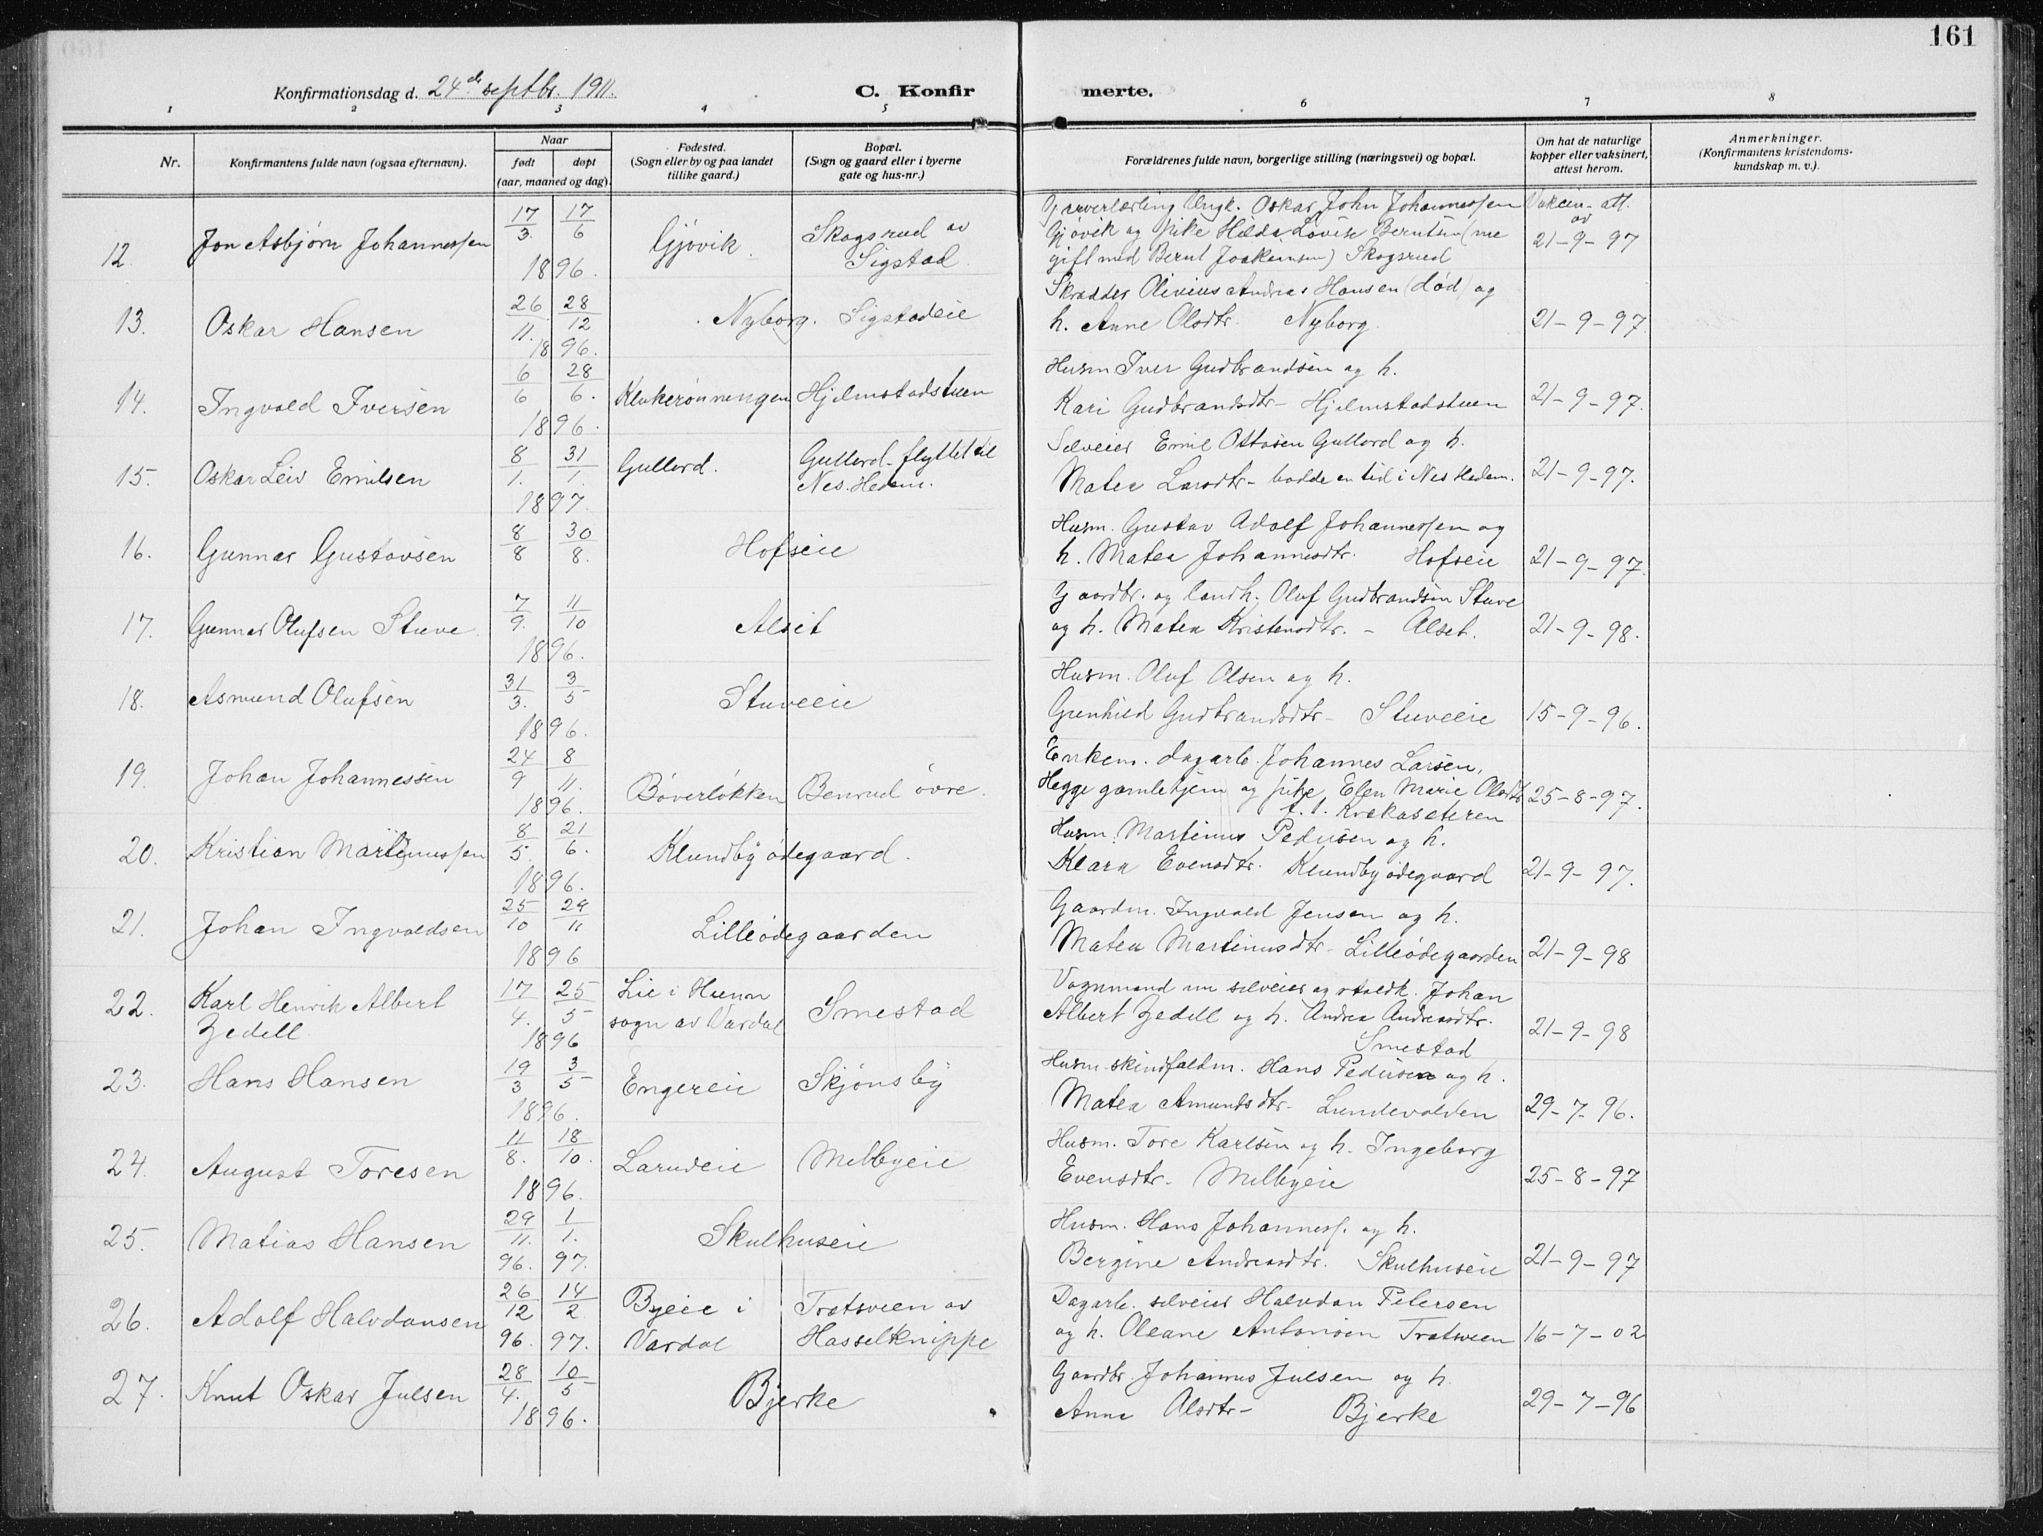 161
Konfirmationsdag d. 24de septbr. 1911. C. Konfirmerte.
1 2 3 4 5 6 7 8
Nr. Konfirmantens fulde navn (ogsaa efternavn). Naar født døpt (aar, maaned og dag). Fødested. (Sogn eller by og paa landet tillike gaard.) Bopæl. (Sogn og gaard eller i byerne gate og hus-nr.) Forældrenes fulde navn, borgerlige stilling (næringsvei) og bopæl. Om hat de naturlige kopper eller vaksinert, attest herom. Anmerkninger. (Konfirmantens kristendoms-kundskap m. v.).
12. Jon Asbjørn Johannessen 17/3. 17/6 1896. Gjøvik Skogsrud av Sigstad.
Garverlærling Ungk. Oskar John Johannessen Vaksin. att. av
Gjøvik og pike Hilda Lovise Berntsen (nu 21-9-97
gift med Bernt Joakimsen) Skogsrud
13. Oskar Hansen 26/11. 28/12 1896. Nyborg. Sigstadeie
Skrædder Olivius Andreas Hansen (død) og
h. Anne Olsdtr. Nyborg. 21-9-97
14. Ingvald Iversen 6/6 28/6. 1896. Klukerønningen Hjelmstadstuen
Husm Iver Gudbrandsen og h.
Kari Gudbrandsdtr- Hjelmstadstuen 21-9-97.
15. Oskar Leiv Emilsen 8/1. 31/1. 1897. Gullord. Gullord- flyttet til Nes. Hedem.
Selveier Emil Ottosen Gullord og h.
Matea Larsdtr- bodde en tid i Nes Hedem. 21-9-97.
16. Gunnar Gustavsen 8/8 30/8. Hofseie
Husm. Gustav Adolf Johannessen og
h. Matea Johannesdtr. Hofseie 21-9-97.
17. Gunnar Olufsen Stuve. 7/9. 11/10 1896. Alset
Gaardbr. og landh. Oluf Gudbrandsen Stuve
og h. Matea Kristensdtr. - Alset. 21-9-98.
18. Asmund Olufsen 31/3. 3/5 1896. Stuveeie
Husm. Oluf Olsen og h.
Gunhild Gudbrandsdtr- Stuveeie 15-9-96.
19. Johan Johannessen 24/9 8/11. 1896. Bøverløkken Benrud øvre.
Enkem. dagarb. Johannes Larsen,
Hegge gamlehjem og pike Elen Marie Olsdtr 25-8-97.
f. t. Krækaseteren
20. Kristian Martinussen 8/5. 21/6. 1896. Klundby ødegaard.
Husm. Martinus Pedersen og h.
Klara Evensdtr. Klundby ødegaard 21-9-97.
21. Johan Ingvaldsen 25/10 29/11 1896 Lilleødegaarden
Gaardm. Ingvald Jensen og h.
Matea Martinusdtr- Lilleødegaarden 21-9-98
22. Karl Henrik Albert Zedell 17/4. 25/5 1896 Lie i Hunn sogn av Vardal Smestad
Vognmand nu selveier og staldk. Johan
Albert Zedell og h. Andrea Andreasdtr. 21-9-98
Smestad
23. Hans Hansen 19/3 3/5 1896. Engereie Skjønsby
Husm. skindfeldm. Hans Pedersen og h.
Matea Amundsdtr- Lundevolden 29-7-96.
24. August Toresen 11/8. 18/10. 1896. Larudeie Melbyeie
Husm. Tore Karlsen og h. Ingeborg
Evensdtr. Melbyeie 25-8-97
25. Matias Hansen 29/11. 96. 1/1. 97. Skulhuseie
Husm. Hans Johanness. og h.
Bergine Andreasdtr. Skulhuseie 21-9-97
26. Adolf Halvdansen 26/12 96. 14/2 97. Byeie i Vardal Tratsveen av Hasselknippe
Dagarb. selveier Halvdan Petersen
og h. Oleane Antonsen Tratsveen 16-7-02
27. Knut Oskar Julsen 28/4. 10/5 1896. Bjerke
Gaardbr. Johannes Julsen og h.
Anne Olsdtr- Bjerke 29-7-96